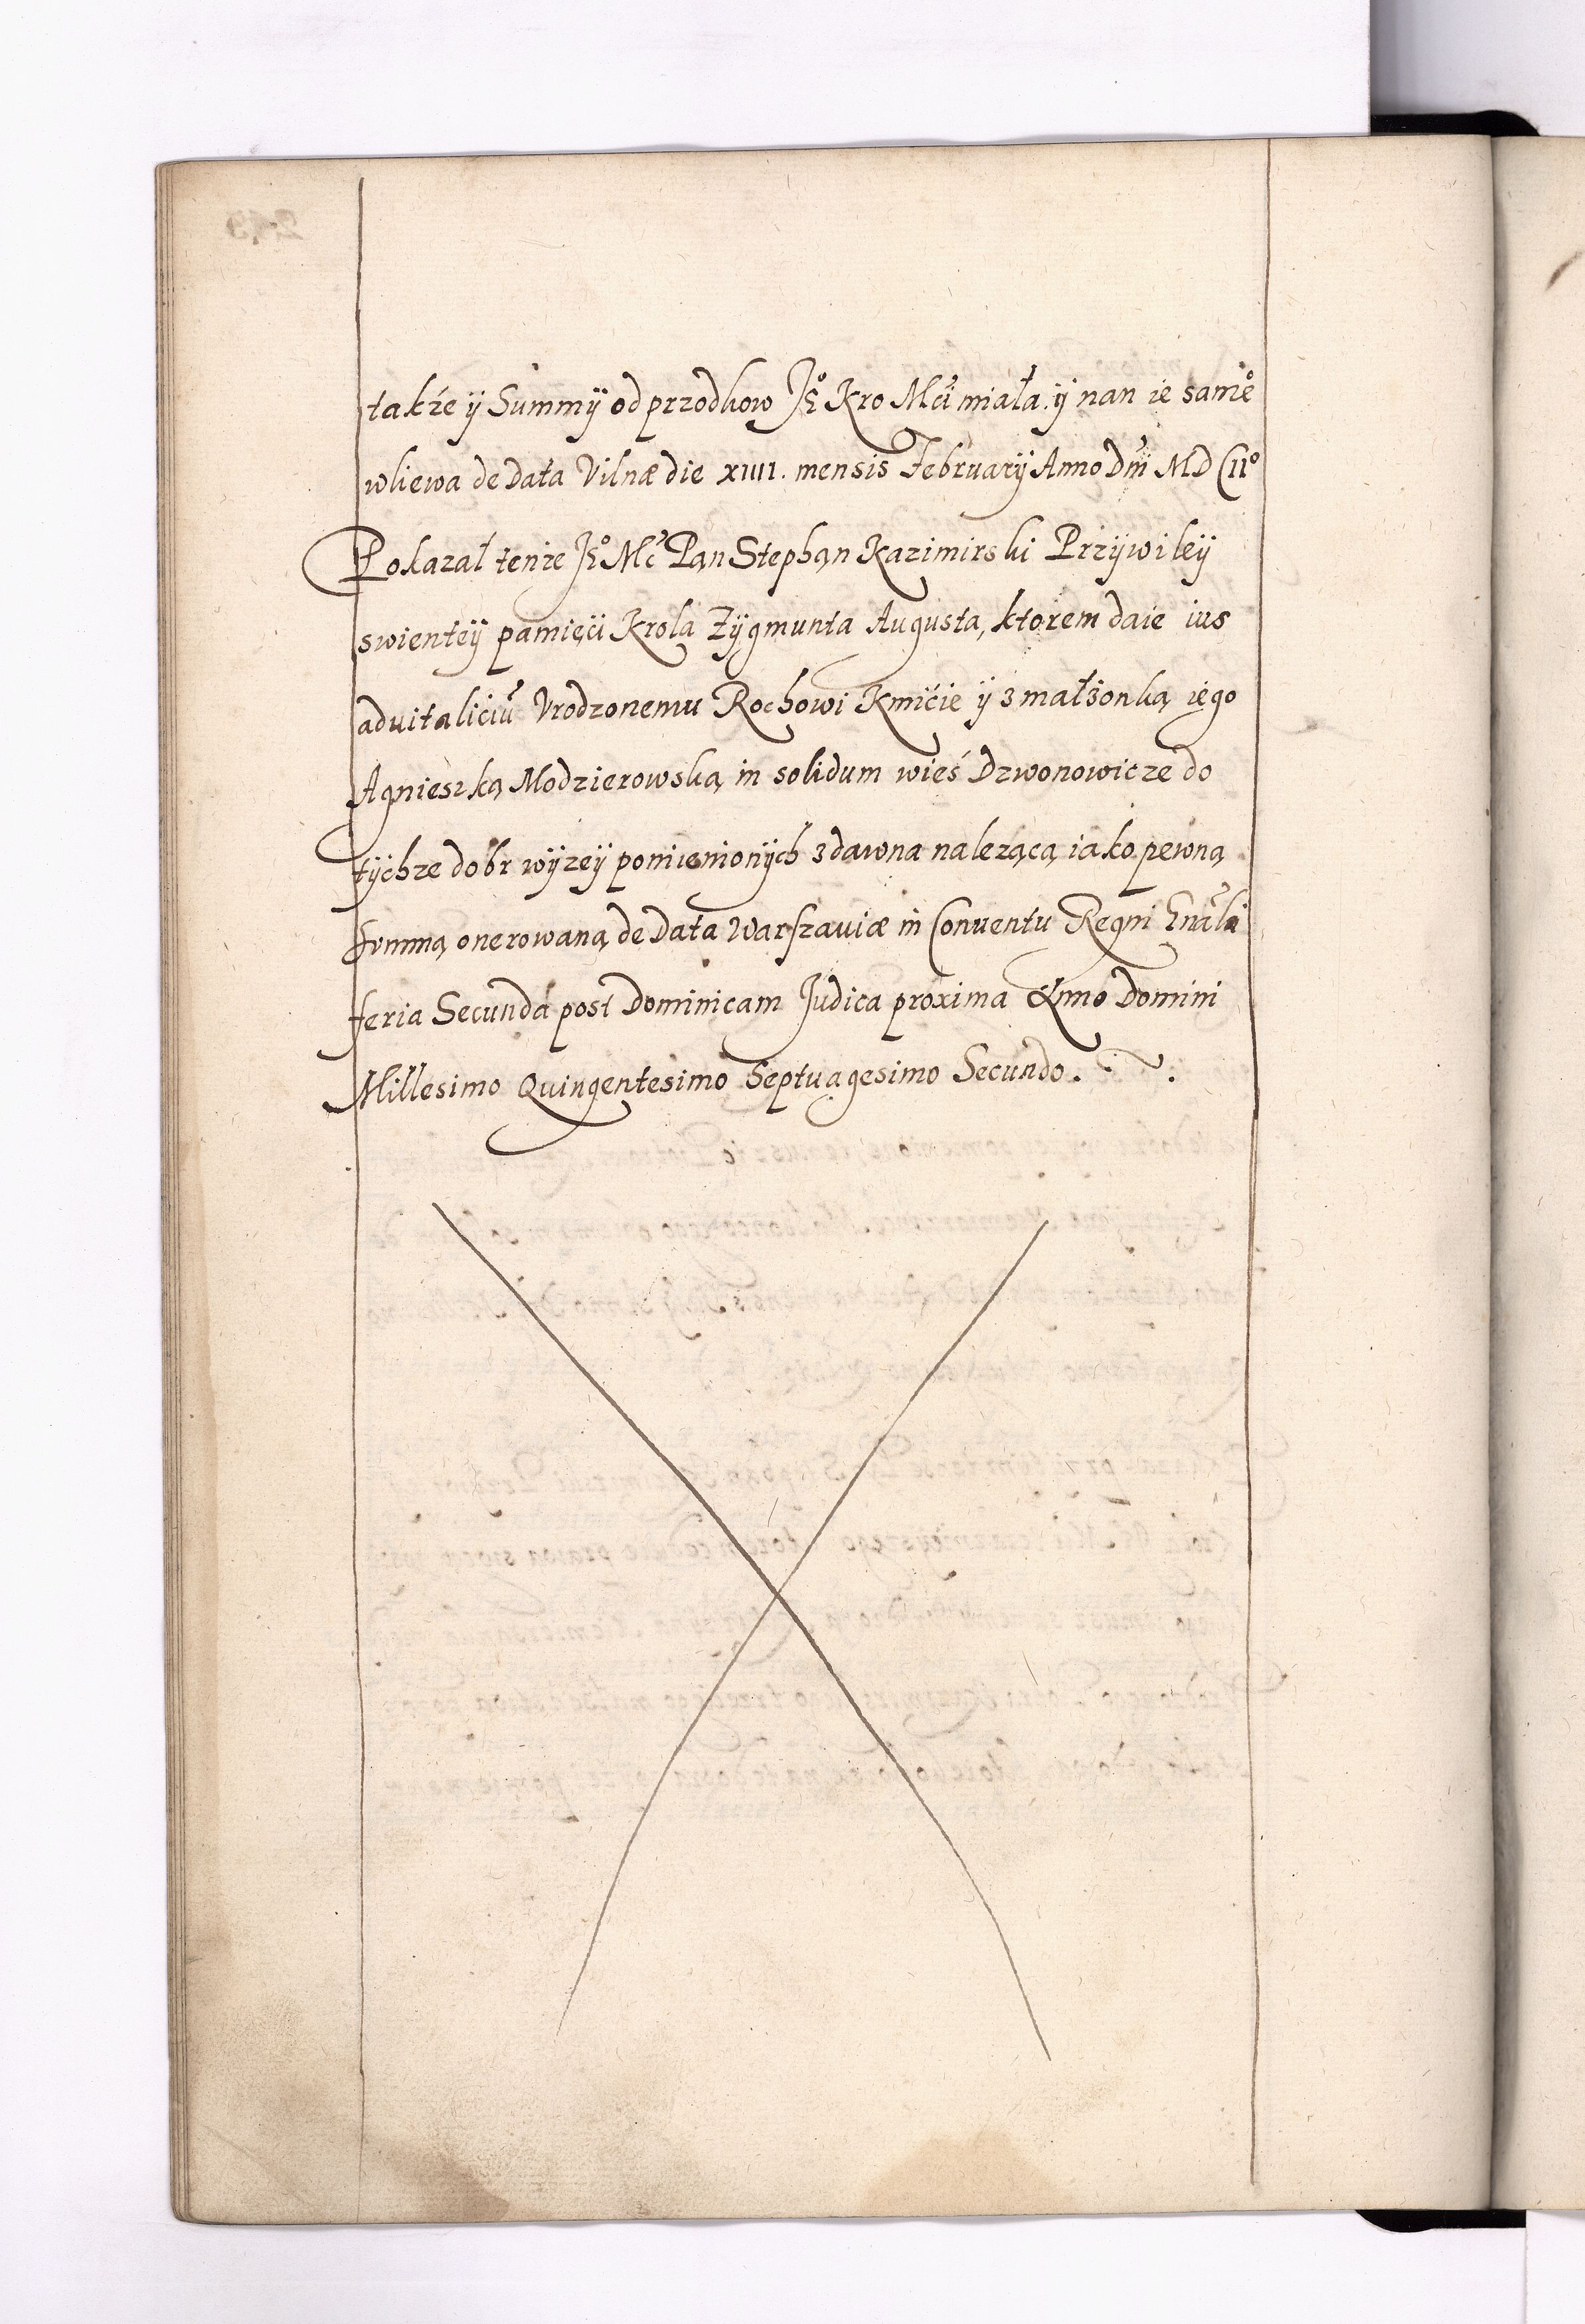 takźe ÿ Summÿ od przodkow Jº Kro Mći miała. ÿ nan ie sameº
wliewa de Data Vilnæ die xıııı. mensis Februarÿ Anno Dni MD CIIº
Pokazał tenze Jº Mć Pan Stephan Kazimirski Przÿwiley
swientey pamięci Krola Zÿgmunta Augusta, ktorem daie ius
aduitaliciū Vrodzonemu Rochowi Kmićie ÿ z małżonką iego
Agnieszką Modzierowską in solidum wieś Dzwonowicze do
tÿchze dobr wÿzeÿ pomienionÿch z dawna nalezącą iako pewną
summą onerowaną de Data Warszauiæ in Conuentu Regni Gnali
feria Secunda post Dominicam Judica proxima Anno Domini
Millesimo Quingentesimo Septuagesimo Secundo.